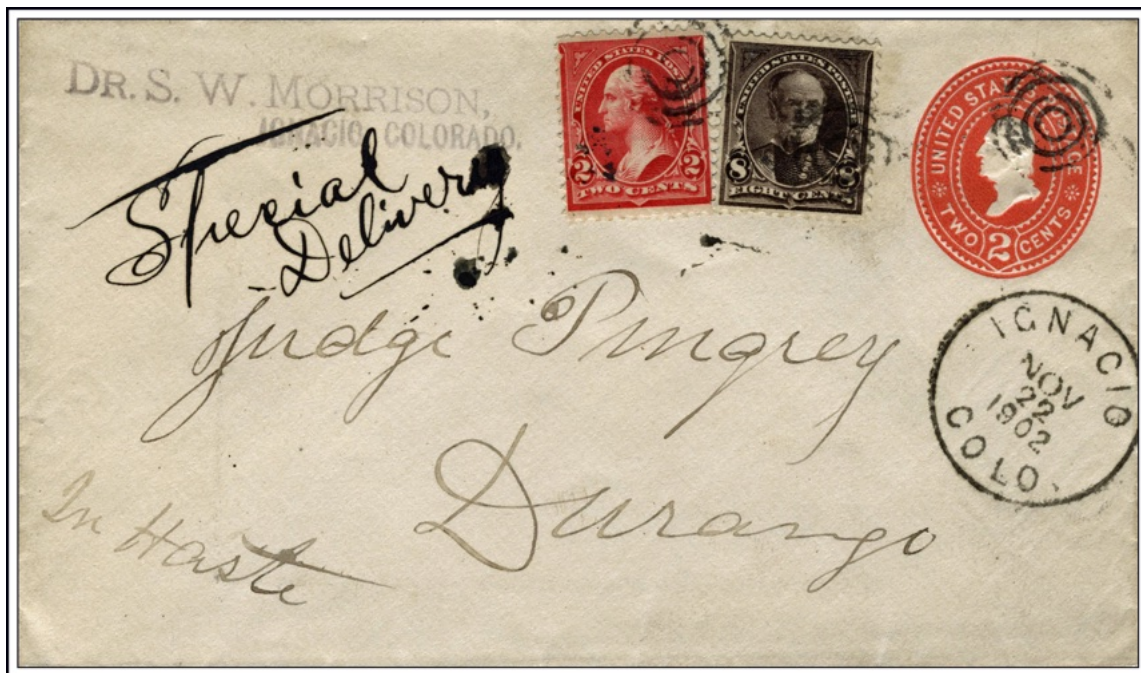 DR. S. W. MORRISON,
IGNACIO, COLORADO.
Special
Delivery
UNITED STATES POSTAGE
2 2
TWO CENTS
UNITED STATES POSTAGE
8 8
EIGHT CENTS
UNITED STATES POSTAGE
TWO 2 CENTS
IGNACIO
NOV
22
1902
COLO.
Judge Pingrey
Durango
In Haste